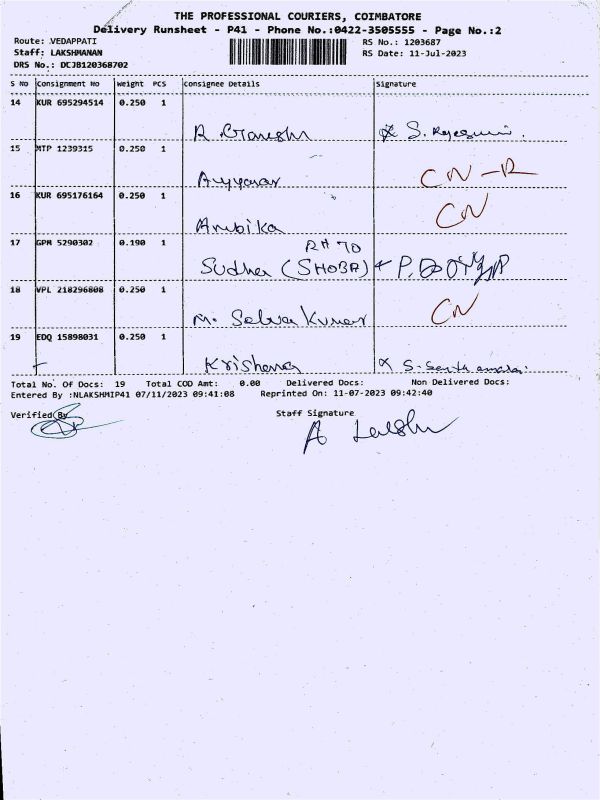 THE PROFESSIONAL COURIERS, COIMBATORE
Delivery Runsheet - P41 - Phone No.:0422-3505555 - Page No.:2
Route: VEDAPPATI RS No.: 1203687
Staff: LAKSHMANAN RS Date: 11-Jul-2023
DRS No.: DCJB120368702
S No Consignment No Weight PCS Consignee Details Signature
14 KUR 695294514 0.250 1
R Ganesh
15 MTP 1239315 0.250 1
Ayyavar CN-R
16 KUR 695176164 0.250 1
Ambika CN
17 GPM 5290302 0.190 1 RH 70
Sudha (SHOBA)
18 VPL 218296808 0.250 1
M. Selva Kumar CN
19 EDQ 15898031 0.250 1
Krishena
Total No. Of Docs: 19 Total COD Amt: 0.00 Delivered Docs: Non Delivered Docs:
Entered By :NLAKSHMIP41 07/11/2023 09:41:08 Reprinted On: 11-07-2023 09:42:40
Verified By Staff Signature